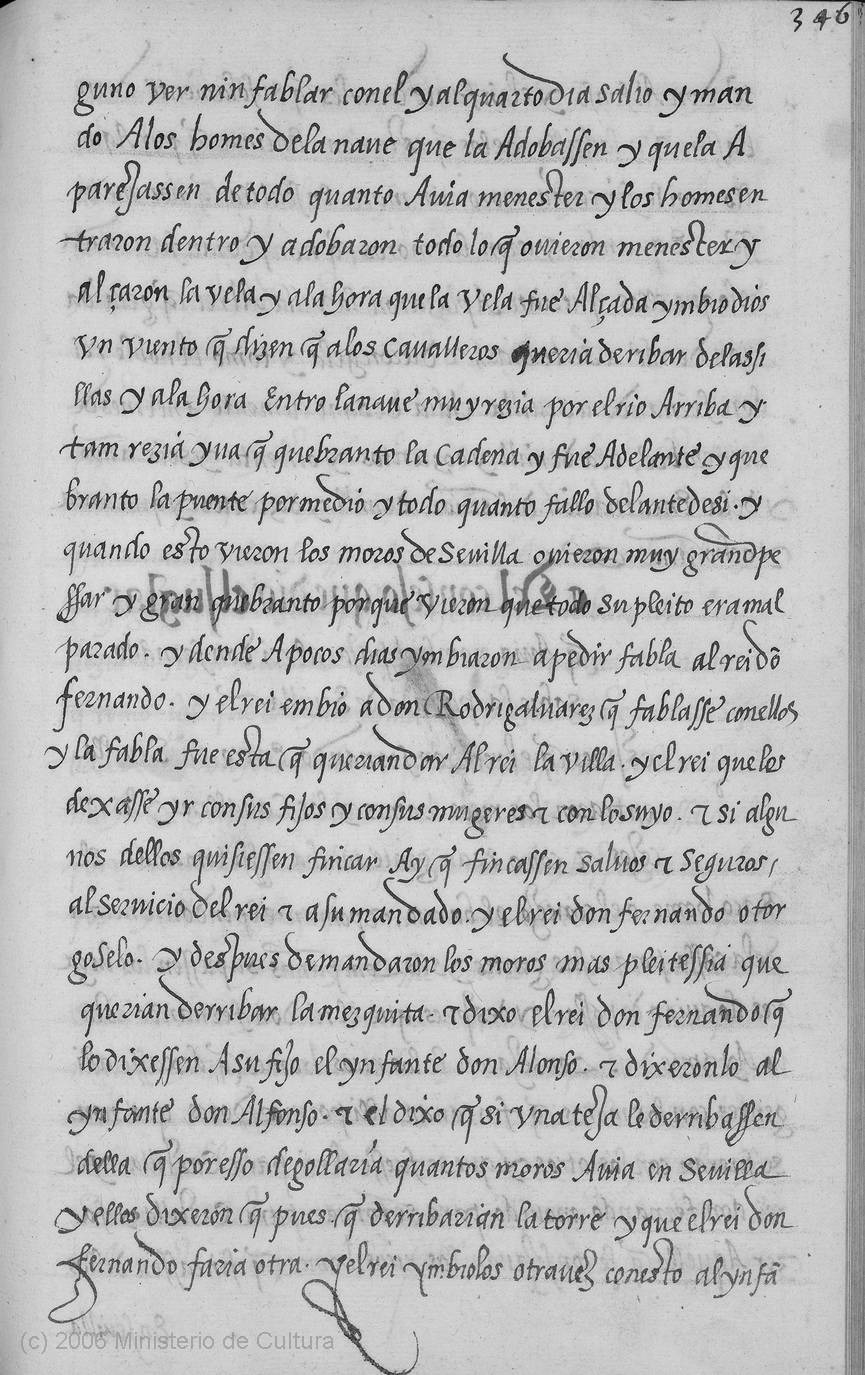 346
guno ver nin fablar con el y al quarto dia salio y man
do A los homes de la nave que la Adobassen y que la A
parejassen de todo quanto Avia menester y los homes en
traron dentro y adobaron todo lo q̃ ovieron menester y
alçaron la vela y a la hora que la vela fue Alçada ymbio dios
vn viento q̃ dizen q̃ a los cavalleros queria deribar de las si
llas y a la hora Entro la nave muy rezia por el rio Arriba y
tam rezia yva q̃ quebranto la Cadena y fue Adelante y que
branto la puente por medio y todo quanto fallo delante de si. y
quando esto vieron los moros de Sevilla ovieron muy grand pe
ssar y gran quebranto porque vieron que todo su pleito era mal
parado. y dende A pocos dias ymbiaron a pedir fabla al rei dõ
fernando. y el rei embio a don Rodrigalvarez q̃ fablasse con ellos
y la fabla fue esta q̃ querian dar Al rei la villa. y el rei que les
dexasse yr con sus fijos y con sus mugeres τ con lo suyo. τ si algu
nos dellos quisiessen fincar Ay q̃ fincassen salvos τ seguros,
al servicio del rei τ a su mandado. y el rei don fernando otor
goselo. y despues demandaron los moros mas pleitessia que
querian derribar la mezquita. τ dixo el rei don fernando q̃
lo dixessen A su fijo el ynfante don Alonso. τ dixeronlo al
ynfante don Alfonso. τ el dixo q̃ si vna teja le derribassen
della q̃ por esso degollaria quantos moros Avia en Sevilla
y ellos dixeron q̃ pues q̃ derribarian la torre y que el rei don
fernando faria otra. y el rei ymbiolos otra vez con esto al ynfã
(c) 2006 Ministerio de Cultura